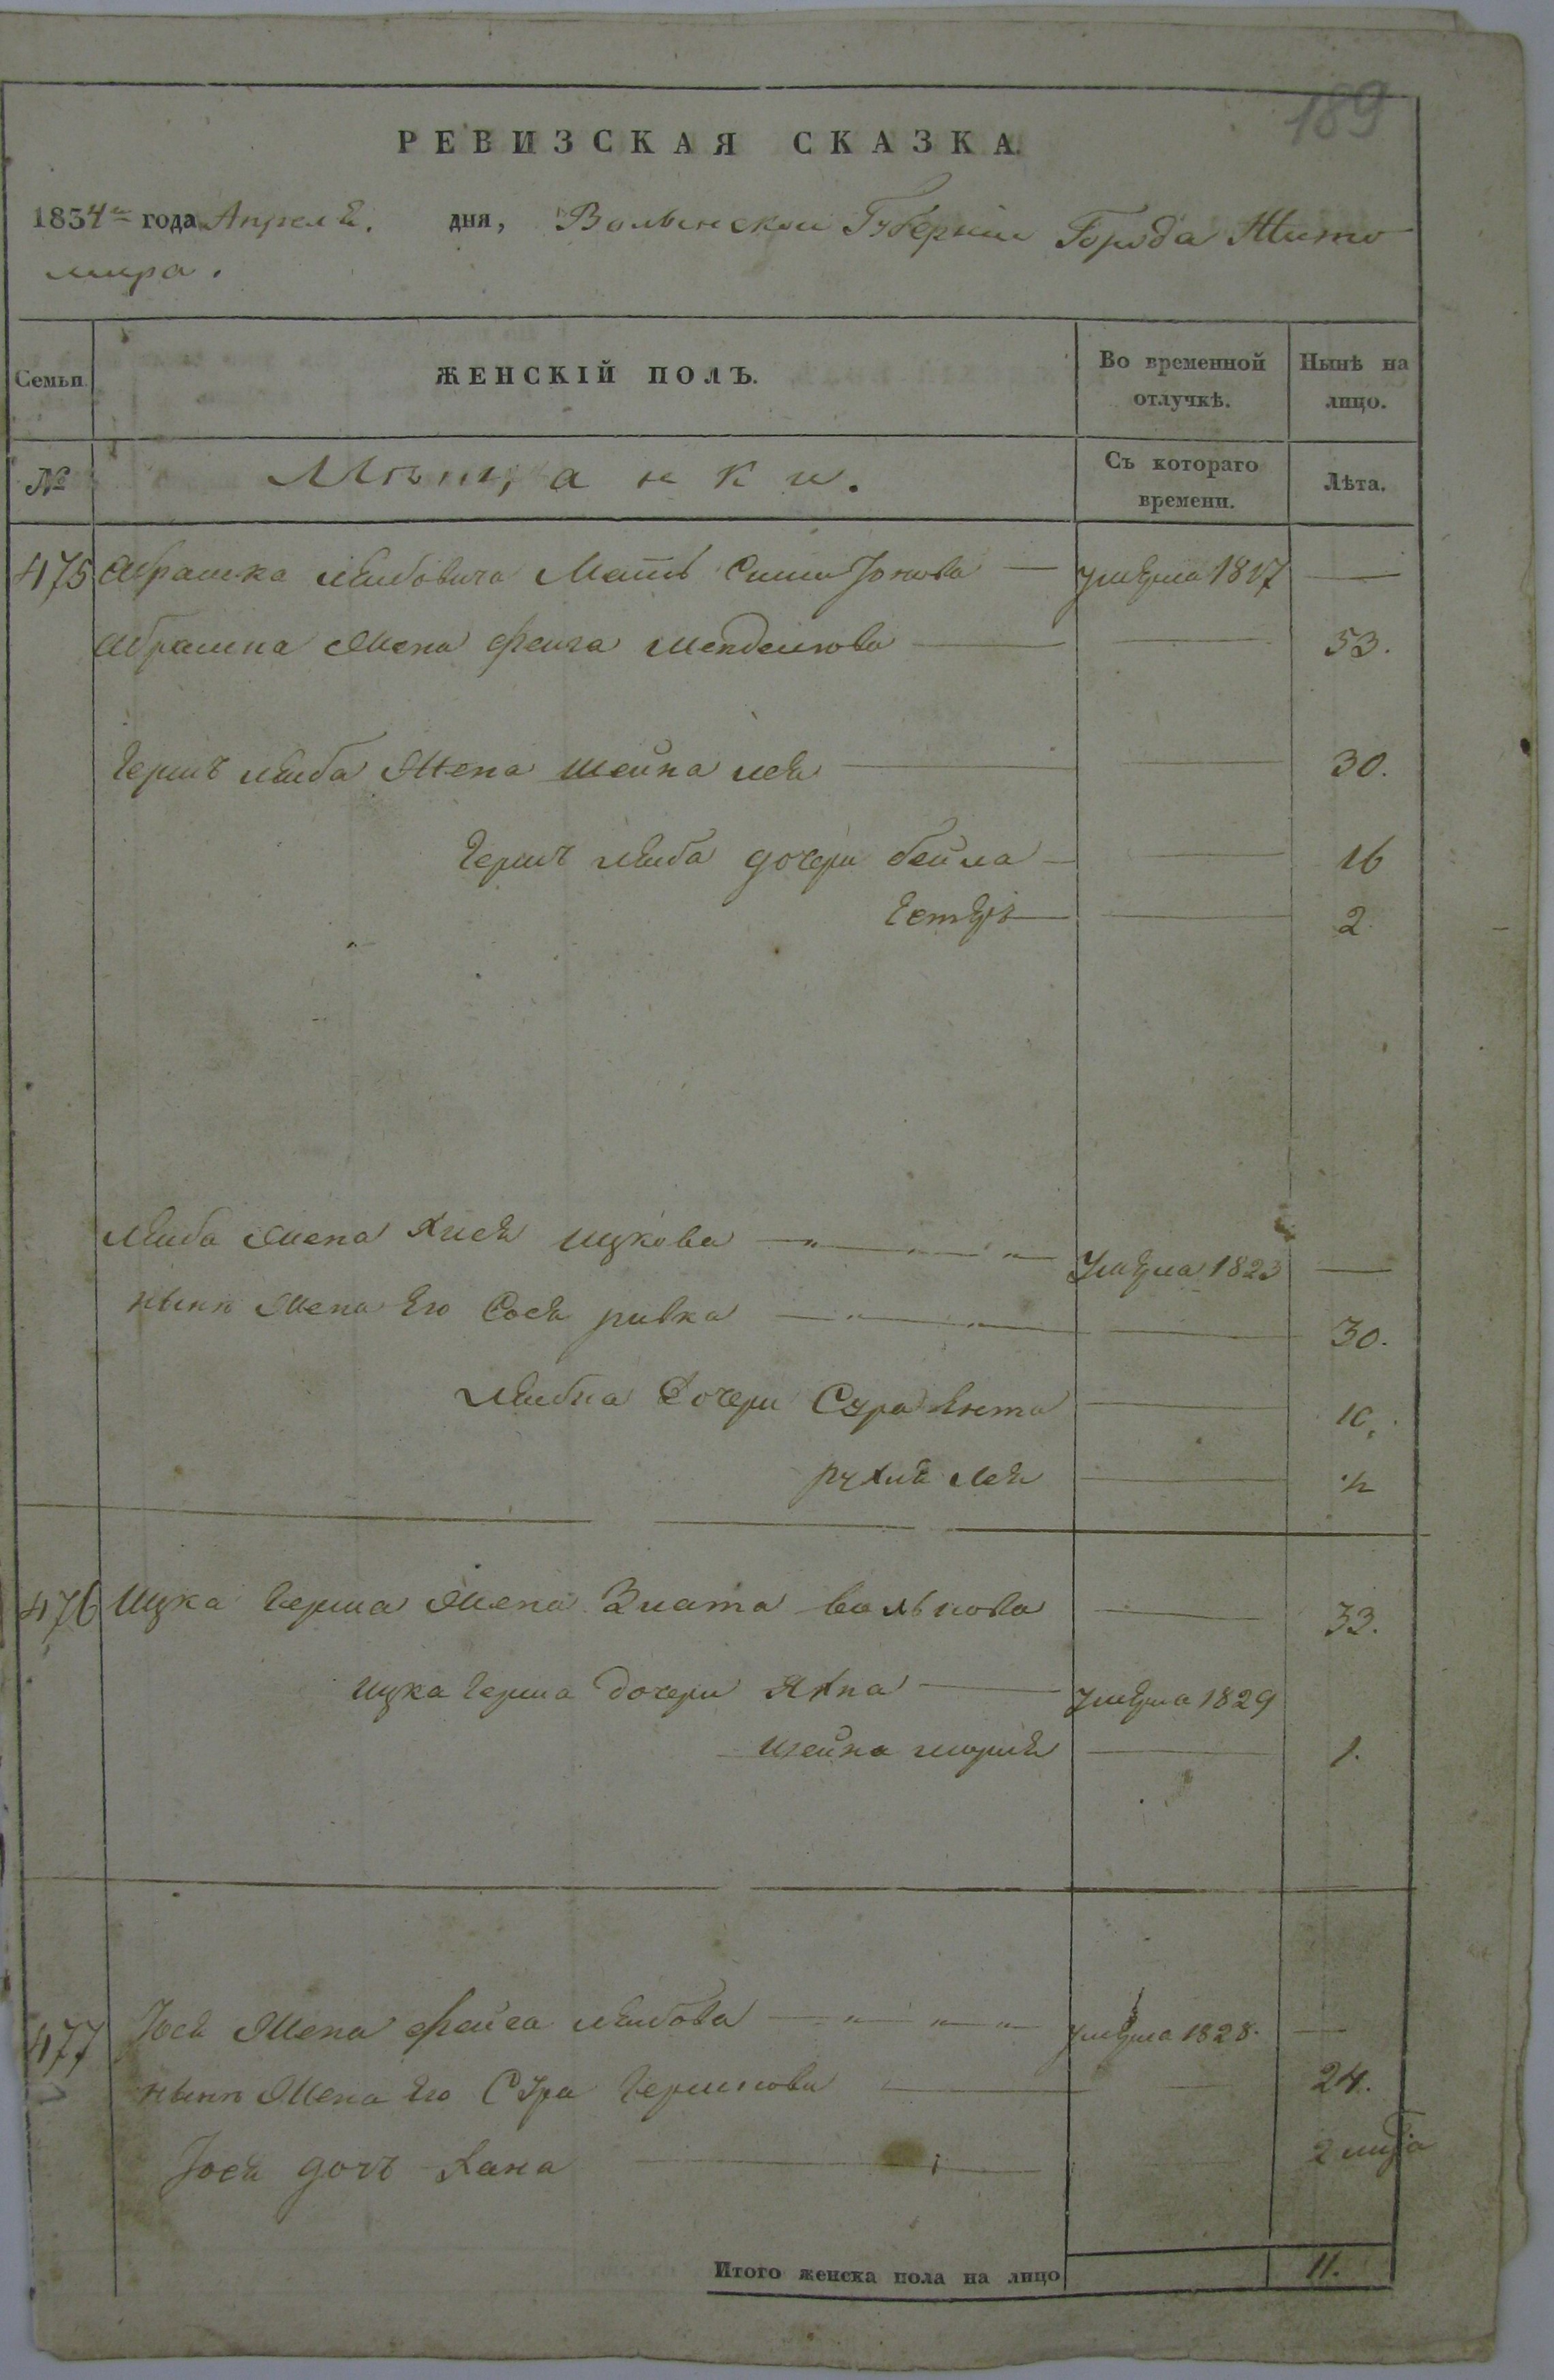 189
РЕВИЗСКАЯ СКАЗКА.
1834го года Апреля. дня, Волынской Губернии Города Жито
мира.
Семьи. ЖЕНСКІЙ ПОЛЪ. Во временной отлучкѣ. Нынѣ на лицо.
№ Мѣщанки. Съ котораго времени. Лѣта.
475 Абрашка Лейбовича Мать Сима — умерла 1817 —
Абрашка Жена Фейга Менделова — — 53.
Гершъ Лейба Жена Шейна лея — — 30.
Гершъ Лейба дочери бейла — — 16
Естеръ — — 2
Лейба Жена Хися Ицкова — умерла 1823 —
ныне Жена Его Сося ривка — — 30.
Лейбы Дочери Сура Ента — 10.
рухля Лея —
476 Ицка Герша Жена Злата Волькова — 33.
Ицка Герша дочери Яхна — умерла 1829
Шейна — 1.
477 Іося Жена Фейга Лейбова — умерла 1828. —
ныне Жена Его Сура Гершкова — — 24.
Іося дочъ Хана — 2
Итого женска пола на лицо 11.